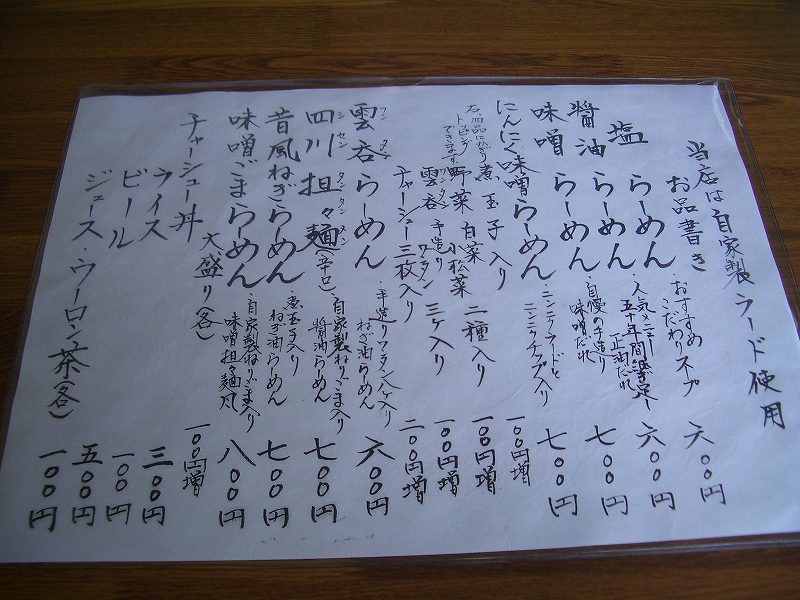 当店は自家製ラード使用
お品書き
塩らーめん ・おすすめ こだわりスープ 六〇〇円
醤油らーめん ・人気メニュー 正油だれ 六〇〇円
味噌らーめん ・自慢の手造り 味噌だれ 七〇〇円
にんにく味噌らーめん ・ニンニクラードと ニンニクチップ入り 七〇〇円
右四品にかぎり トッピング できます
煮玉子入り 一〇〇円増
野菜 白菜 小松菜 二種入り 一〇〇円増
雲呑 ワンタン 手造り ワンタン 三ヶ入り 一〇〇円増
チャーシュー三枚入り 二〇〇円増
雲呑らーめん ワンタン ・手造りワンタン八ヶ入り ねぎ油らーめん 六〇〇円
四川担々麺(辛口) シセンタンタンメン ・自家製ねりごま入り 醤油らーめん 七〇〇円
昔風ねぎらーめん 煮玉子入り ねぎ油らーめん 七〇〇円
味噌ごまらーめん ・自家製ねりごま入り 味噌担々麺風 八〇〇円
大盛り(各) 一〇〇円増
チャーシュー丼 三〇〇円
ライス 一〇〇円
ビール 五〇〇円
ジュース・ウーロン茶(各) 一〇〇円